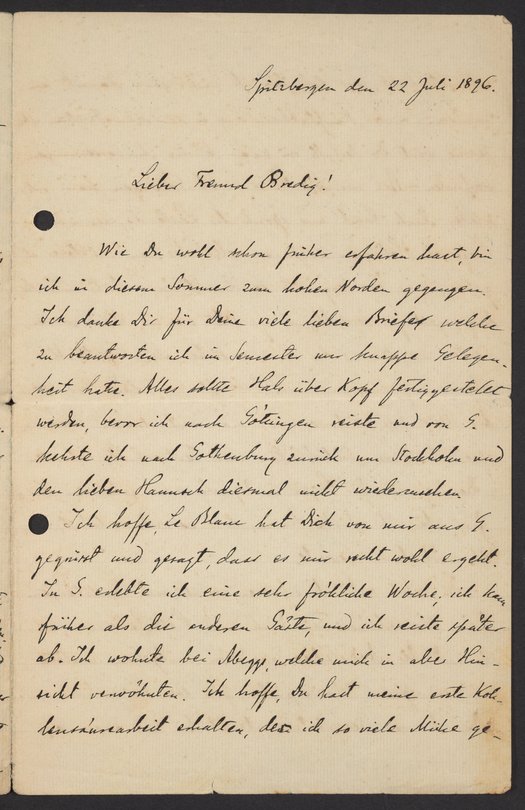 Spitzbergen den 22 Juli 1896.
Lieber Freund Bredig!
Wie Du wohl schon früher erfahren hast, bin
ich in diesem Sommer zum hohen Norden gegangen.
Ich danke Dir für Deine viele lieben Briefe welche
zu beantworten ich im Semester nur knappe Gelegen-
heit hatte. Alles sollte Hals über Kopf fertiggestellt
werden, bevor ich nach Göttingen reiste und von G.
kehrte ich nach Gothenburg zurück um Stockholm und
den lieben Hannsch diesmal nicht wiederzusehen
Ich hoffe, Le Blanc hat Dich von mir aus G.
gegrüsst und gesagt, dass es mir recht wohl ergeht.
In G. erlebte ich eine sehr fröhliche Woche, ich kam
früher als die anderen Gäste, und ich reiste später
ab. Ich wohnte bei Abeggs, welche mich in aller Hin-
sicht verwöhnten. Ich hoffe, Du hast meine erste Koh-
lensäurearbeit erhalten, der ich so viele Mühe ge-